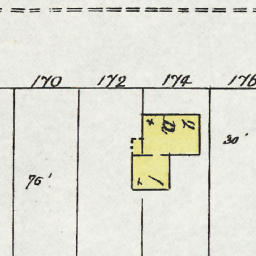 170 172 174 176
2 D x
30'
76'
1 x